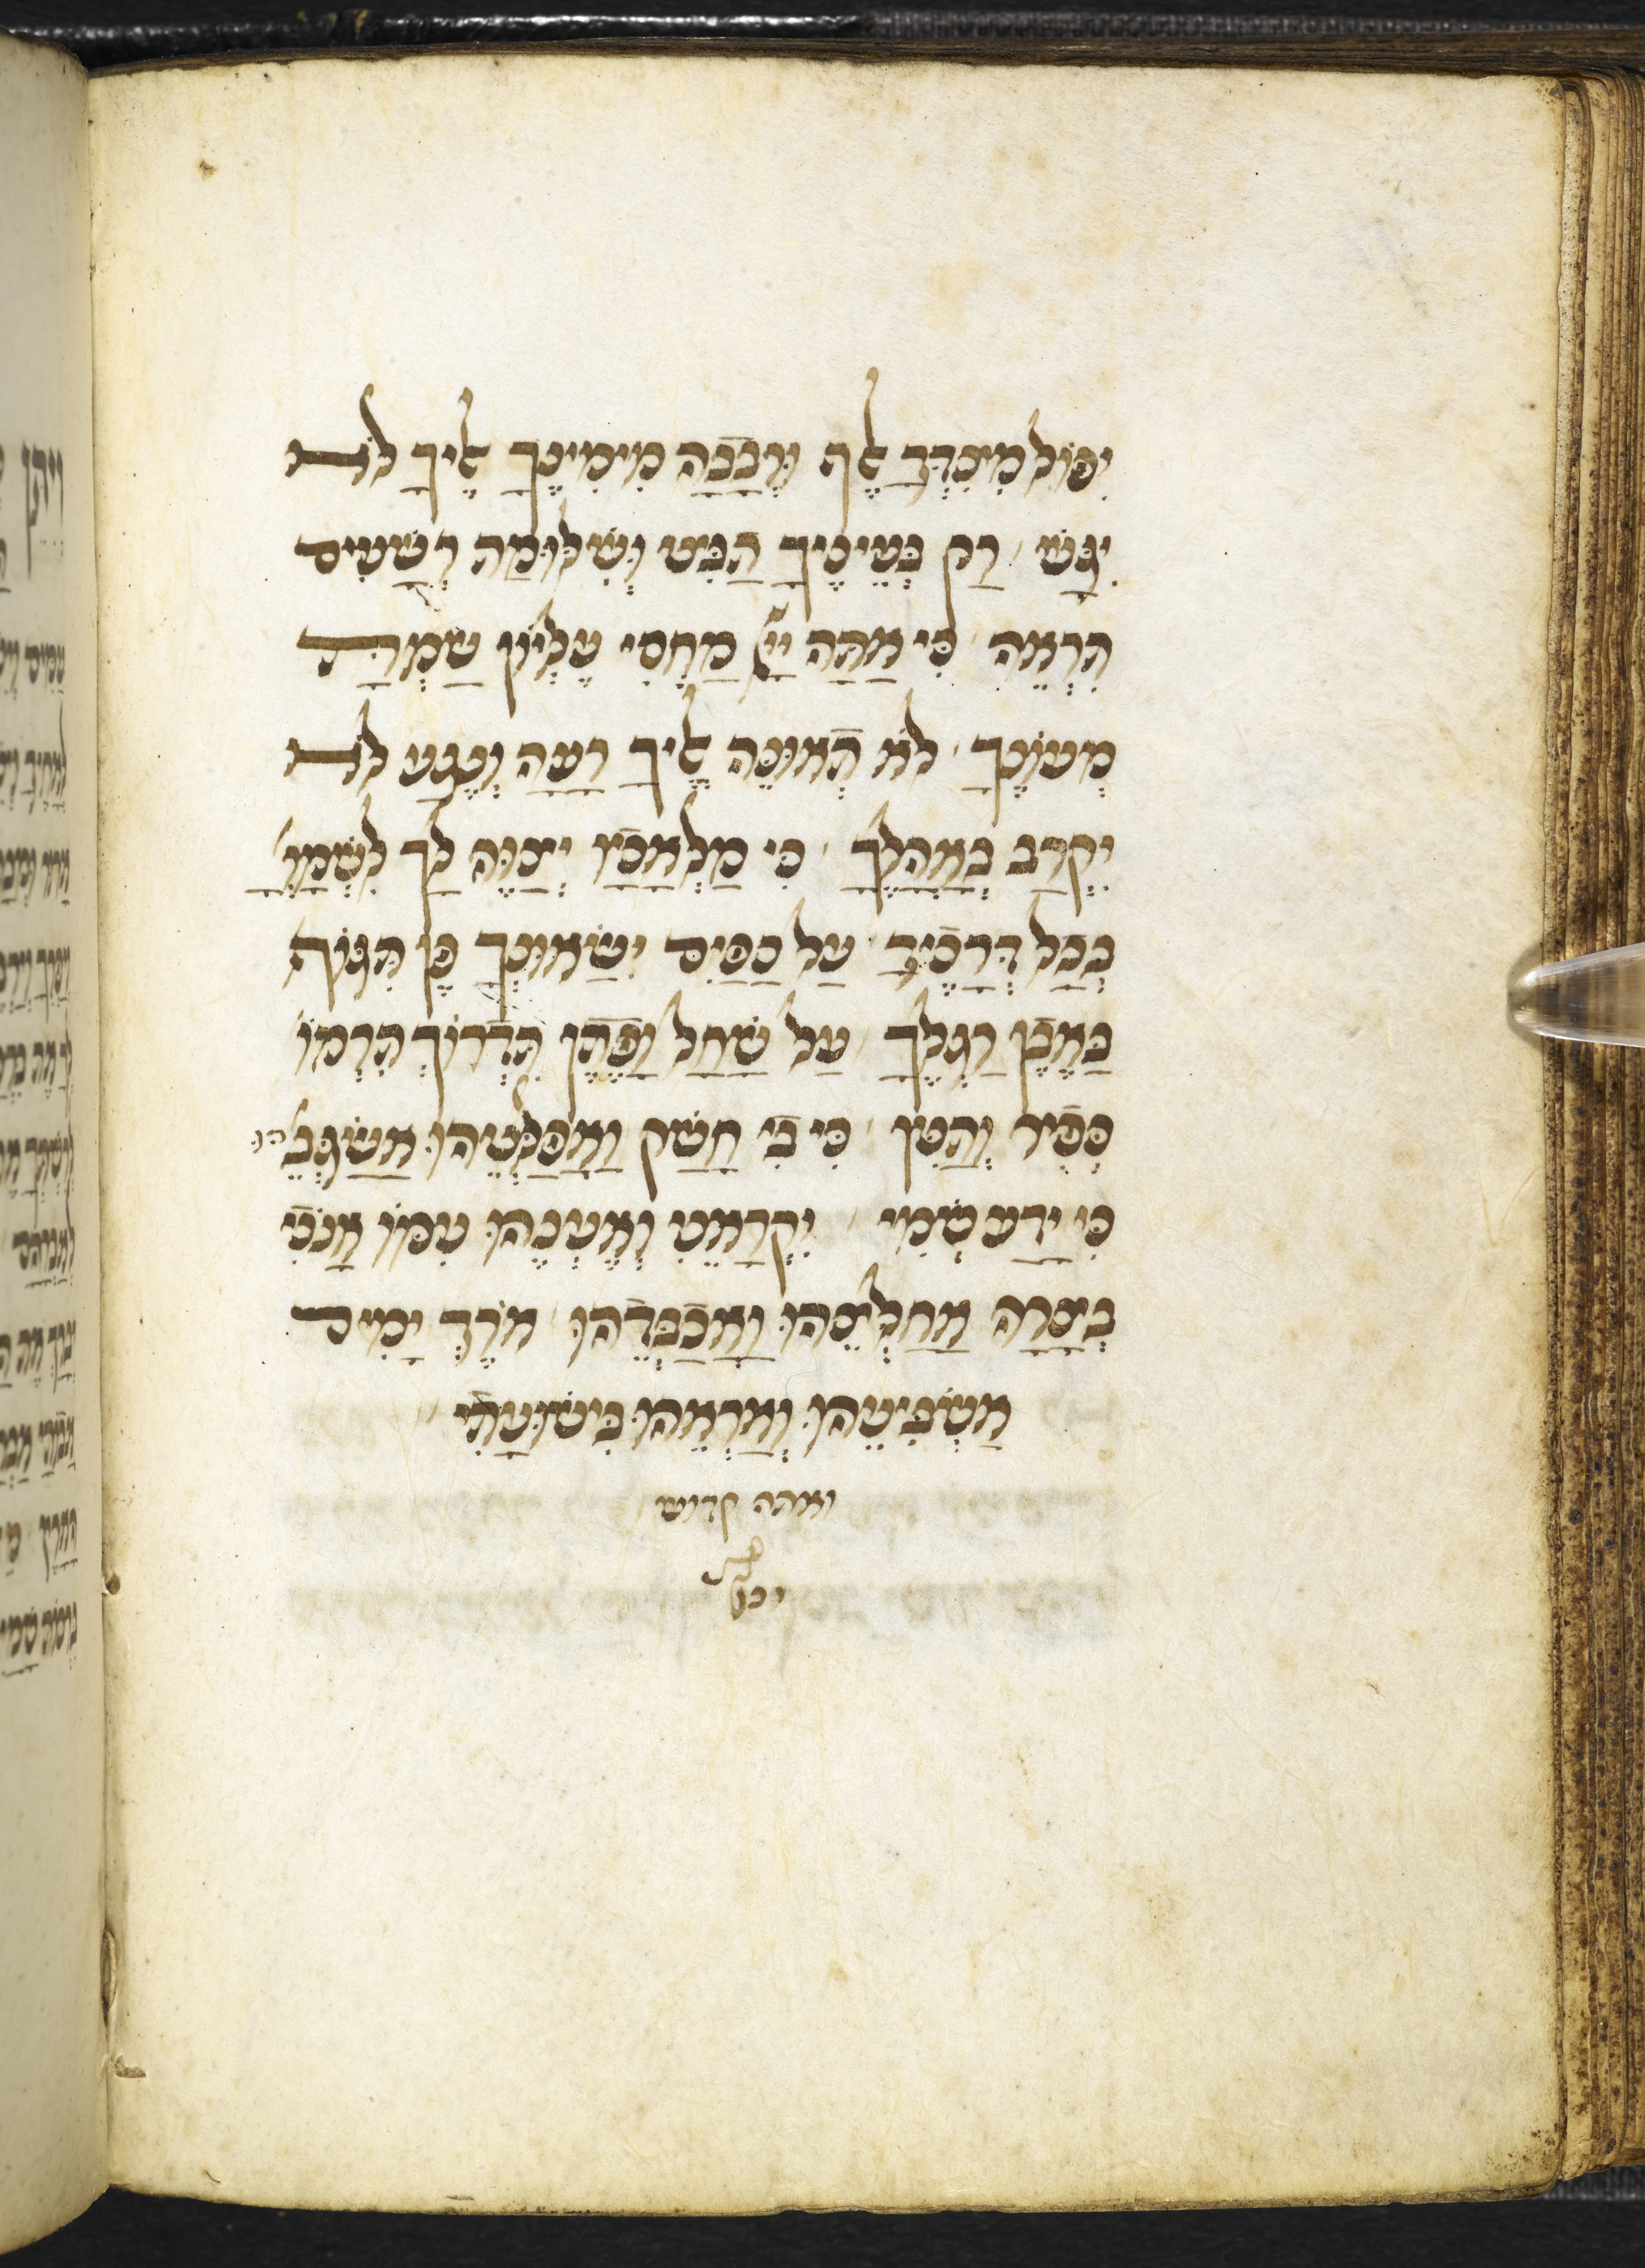 יִפּוֹל מִצִדְּךָ אֶלֶף וּרְבָבָה מִימִינֶךָ אֵלֶיךָ לֹא
יִגָּשׁ רַק בְּעֵינֶיךָ תַבִּיט וְשִׁלּוּמַת רְשָׁעִים
תִרְאֶה כִּי אַתָּה יְיָ מַחְסִי עֶלְיוֹן שַׂמְתָּ
מְעוֹנֶךָ לֹא תְאוּנֶּה אֵלֶיךָ רָעָה וְנֶגַע לֹא
יִקְרַב בְּאָהֳלֶךָ כִּי מַלְאָכָיו יְצַוֶּה לָךְ לִשְׁמָרְךָ
בְּכָל דְּרָכֶיךָ עַל כַּפַּיִם יִשָּׂאוּנְךָ פֶּן תִּגּוֹף
בָּאֶבֶן רַגְלֶךָ עַל שַׁחַל וָפֶתֶן תִּדְרוֹךְ תִּרְמוֹס
כְּפִיר וְתַנִּין כִּי בִי חָשַׁק וַאֲפַלְּטֵהוּ אֲשַׂגְּבֵהוּ
כִּי יָדַע שְׁמִי יִקְרָאֵנִי וְאֶעֱנֵהוּ עִמּוֹ אָנֹכִי
בְצָרָה אֲחַלְּצֵהוּ וַאֲכַבְּדֵהוּ אֹרֶךְ יָמִים
אַשְׂבִּיעֵהוּ וְאַרְאֵהוּ בִּישׁוּעָתִי
ואתה קדוש